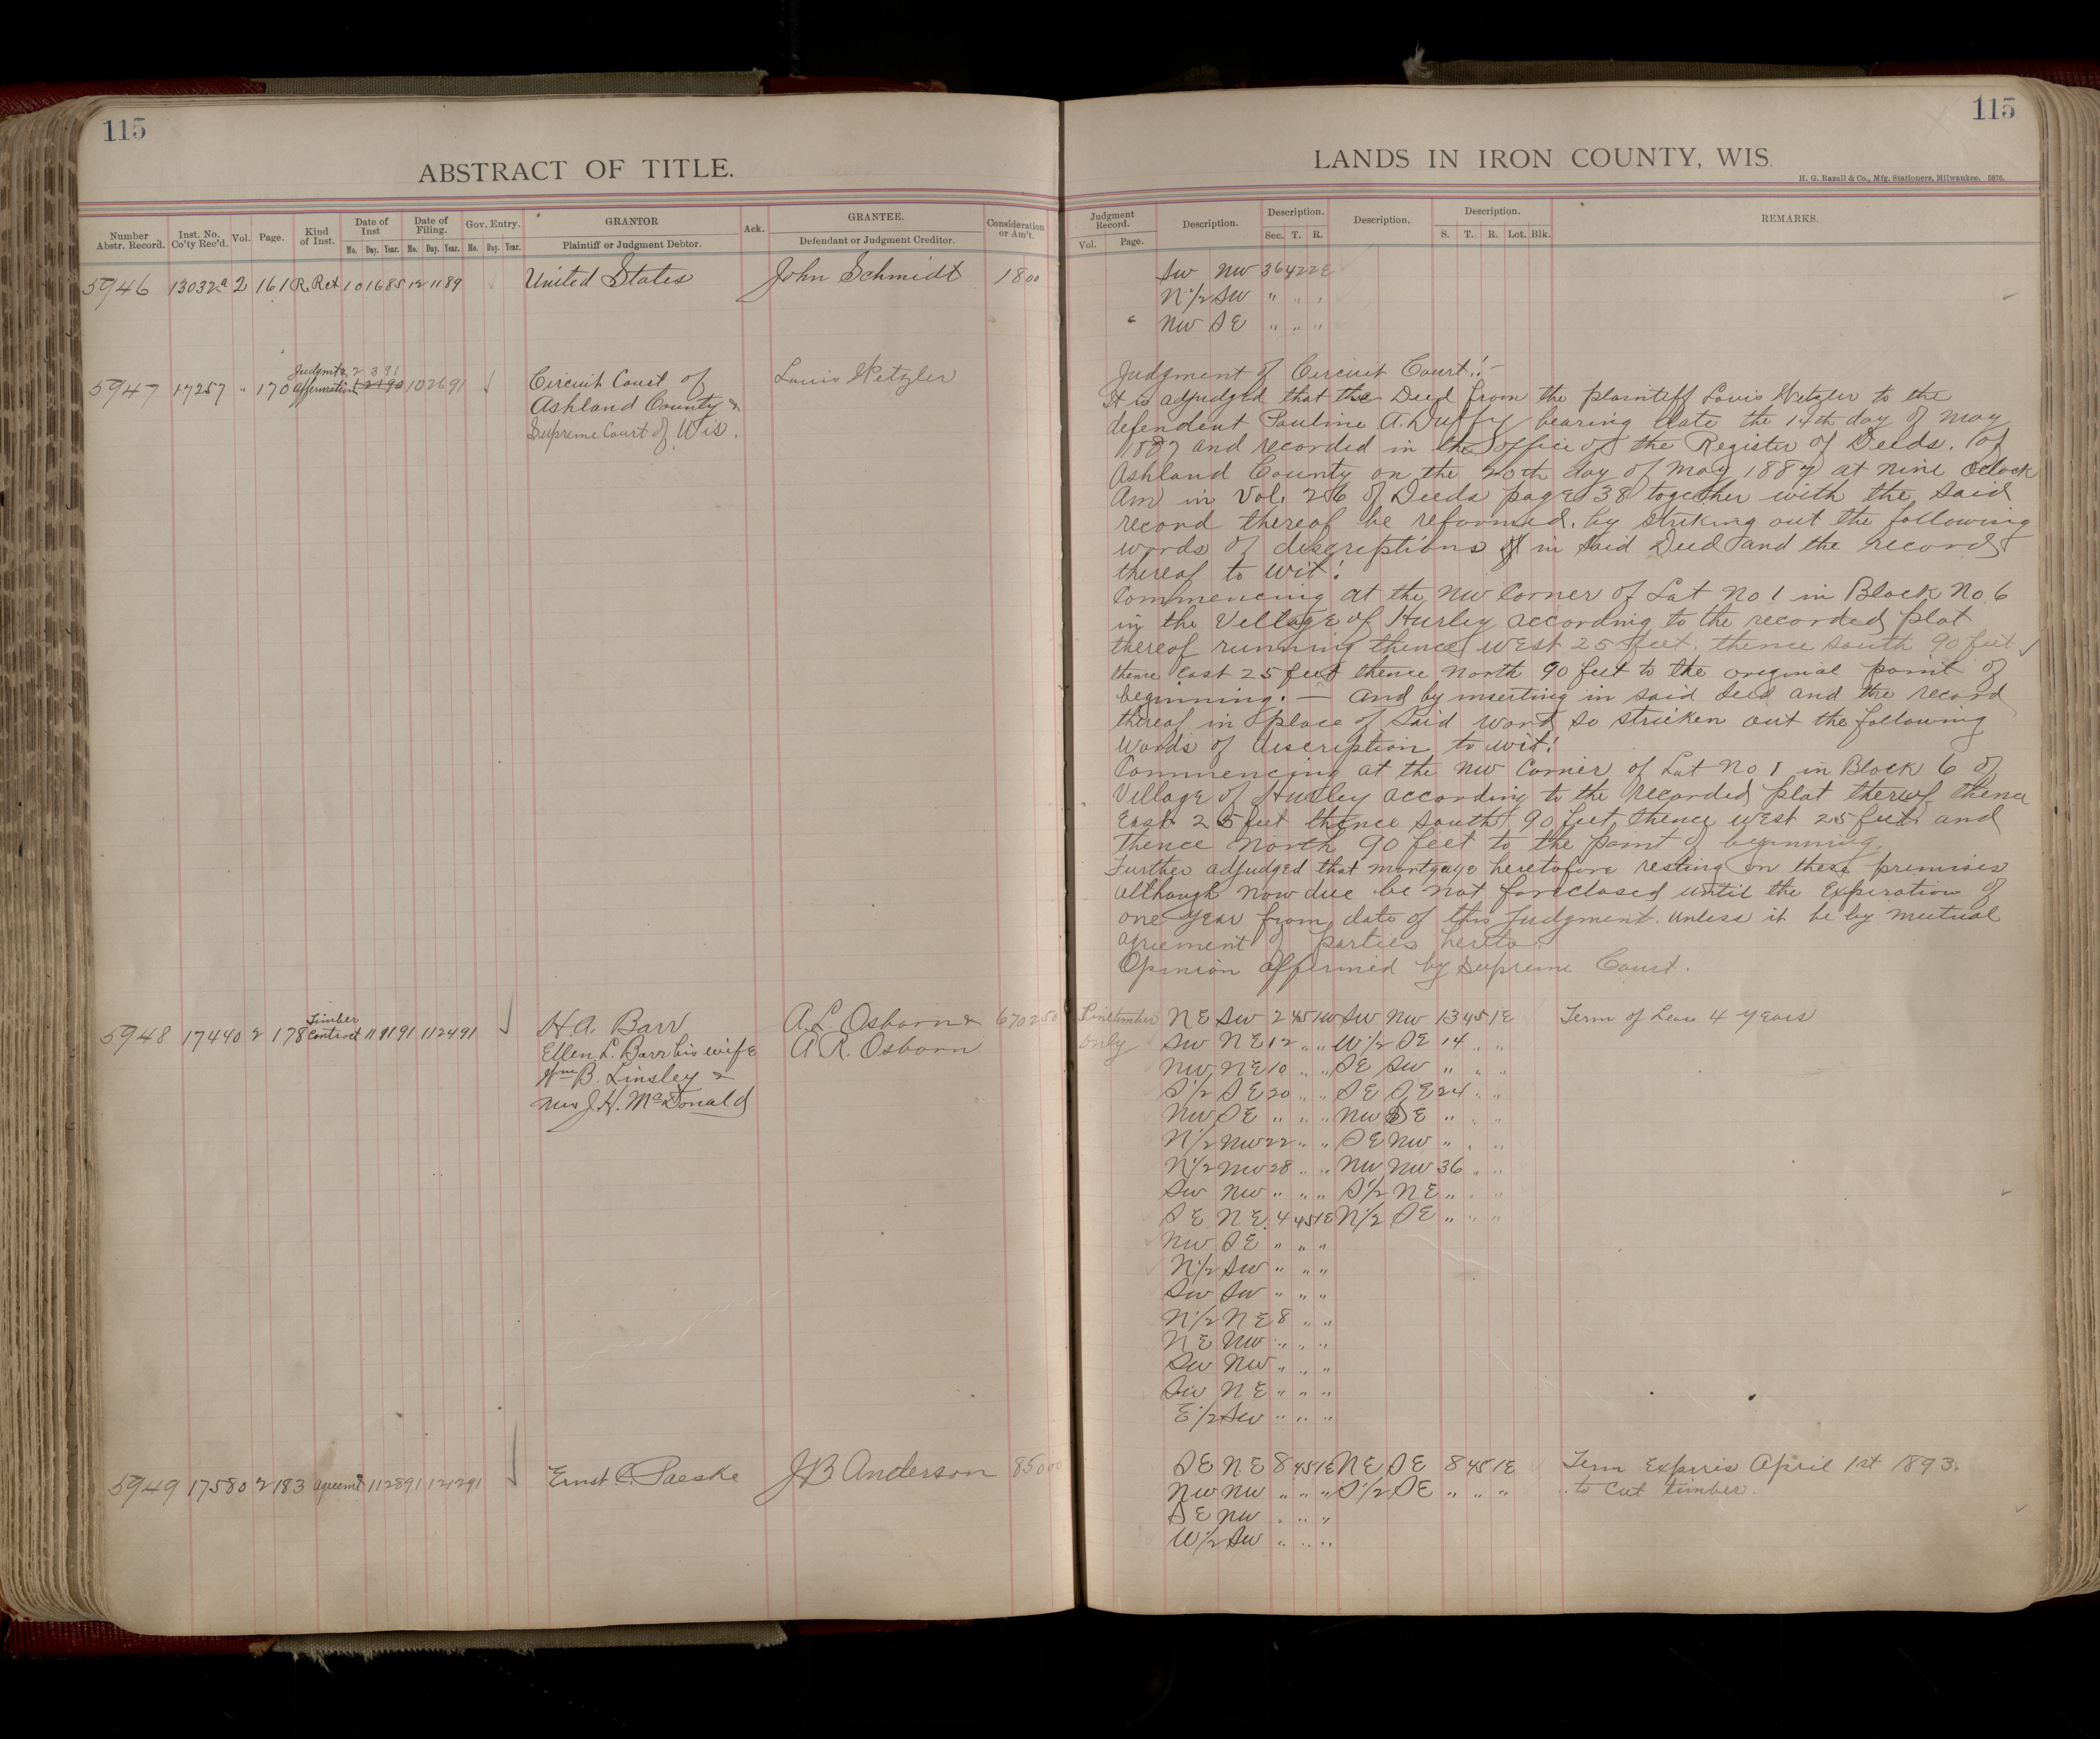 115
ABSTRACT OF TITLE.
Number Abstr. Record. Inst. No. Co'ty Rec'd. Vol. Page. Kind of Inst. Date of Inst Mo. Day. Year. Date of Filing. Mo. Day. Year. Gov. Entry. Mo. Day. Year. GRANTOR Plaintiff or Judgment Debtor. Ack. GRANTEE. Defendant or Judgment Creditor. Consideration or Am't.
5946 13032a 2 161 R. Rct 10 16 85 12 11 89 United States John Schmidt 18 00
5947 17257 " 170 Judgmt & Affirmation 2 3 91 10 26 91 Circuit Court of Louis Wetzler
Ashland County &
Supreme Court of Wis.
5948 17440 2 178 Timber Contract 11 91 91 11 24 91 H. A. Barr A. L. Osborn & 6702 50
Ellen L. Barr his wife A. R. Osborn
Wm B. Linsley &
J. H. McDonald
5949 17580 2 183 Agreemt 11 28 91 12 12 91 Ernst C. Paeske J B Anderson 850 00
115
LANDS IN IRON COUNTY, WIS.
H. G. Razall & Co., Mfg. Stationers, Milwaukee. 5876.
Judgment Record. Vol. Page. Description. Description. Sec. T. R. Description. Description. S. T. R. Lot. Blk. REMARKS.
SW NW 36 42 2E
N 1/2 SW " " "
NW SE " " "
Judgment of Circuit Court:-
It is adjudged that the Deed from the plaintiff Louis Wetzler to the
defendent Pauline A. Duffy bearing date the 14th day of May
1887 and recorded in the office of the Register of Deeds. of
Ashland County on the 20th day of May 1887 at nine oclock
AM in Vol. 26 of Deeds page 38 together with the said
record thereof be reformed. by striking out the following
words of discriptions in said Deed and the record
thereof to wit:
Commencing at the NW Corner of Lot No 1 in Block No 6
in the Village of Hurley according to the recorded plat
thereof running thence west 25 feet. thence south 90 feet
thence East 25 feet thence North 90 feet to the original point of
beginning. — and by inserting in said deed and the record
thereof in place of said word so stricken out the following
words of discription to wit:
Commencing at the NW Corner of Lot No 1 in Block 6 of
Village of Hurley according to the recorded plat thereof thence
East 25 feet thence south 90 feet thence west 25 feet and
thence North 90 feet to the point of beginning.
Further adjudged that mortgage heretofore resting on these premises
although now due be not foreclosed until the Expiration of
one year from date of this Judgment. unless it be by mutual
agriement of parties hereto.
Opinion affirmed by Supreme Court.
Pine timber NE SW 2 45 1W SW NW 13 45 1E Term of Lease 4 years
only SW NE 12 " " W 1/2 SE 14 " "
NW NE 10 " " SE SW " " "
S 1/2 SE 20 " " SE SE 24 " "
NW SE " " " NW SE " " "
N 1/2 NW 22 " " SE NW " " "
N 1/2 NW 28 " " NW NW 36 " "
SW NW " " " S 1/2 NE " " "
SE NE 4 45 1E N 1/2 SE " " "
NW SE " " "
N 1/2 SW " " "
SW SW " " "
N 1/2 NE 8 " "
NE NW " " "
SW NW " " "
SW NE " " "
E 1/2 SW " " "
SE NE 8 45 1E NE SE 8 45 1E Term Expiris April 1st 1893.
NW NW " " " S 1/2 SE " " " to cut timber.
SE NW " " "
W 1/2 SW " " "